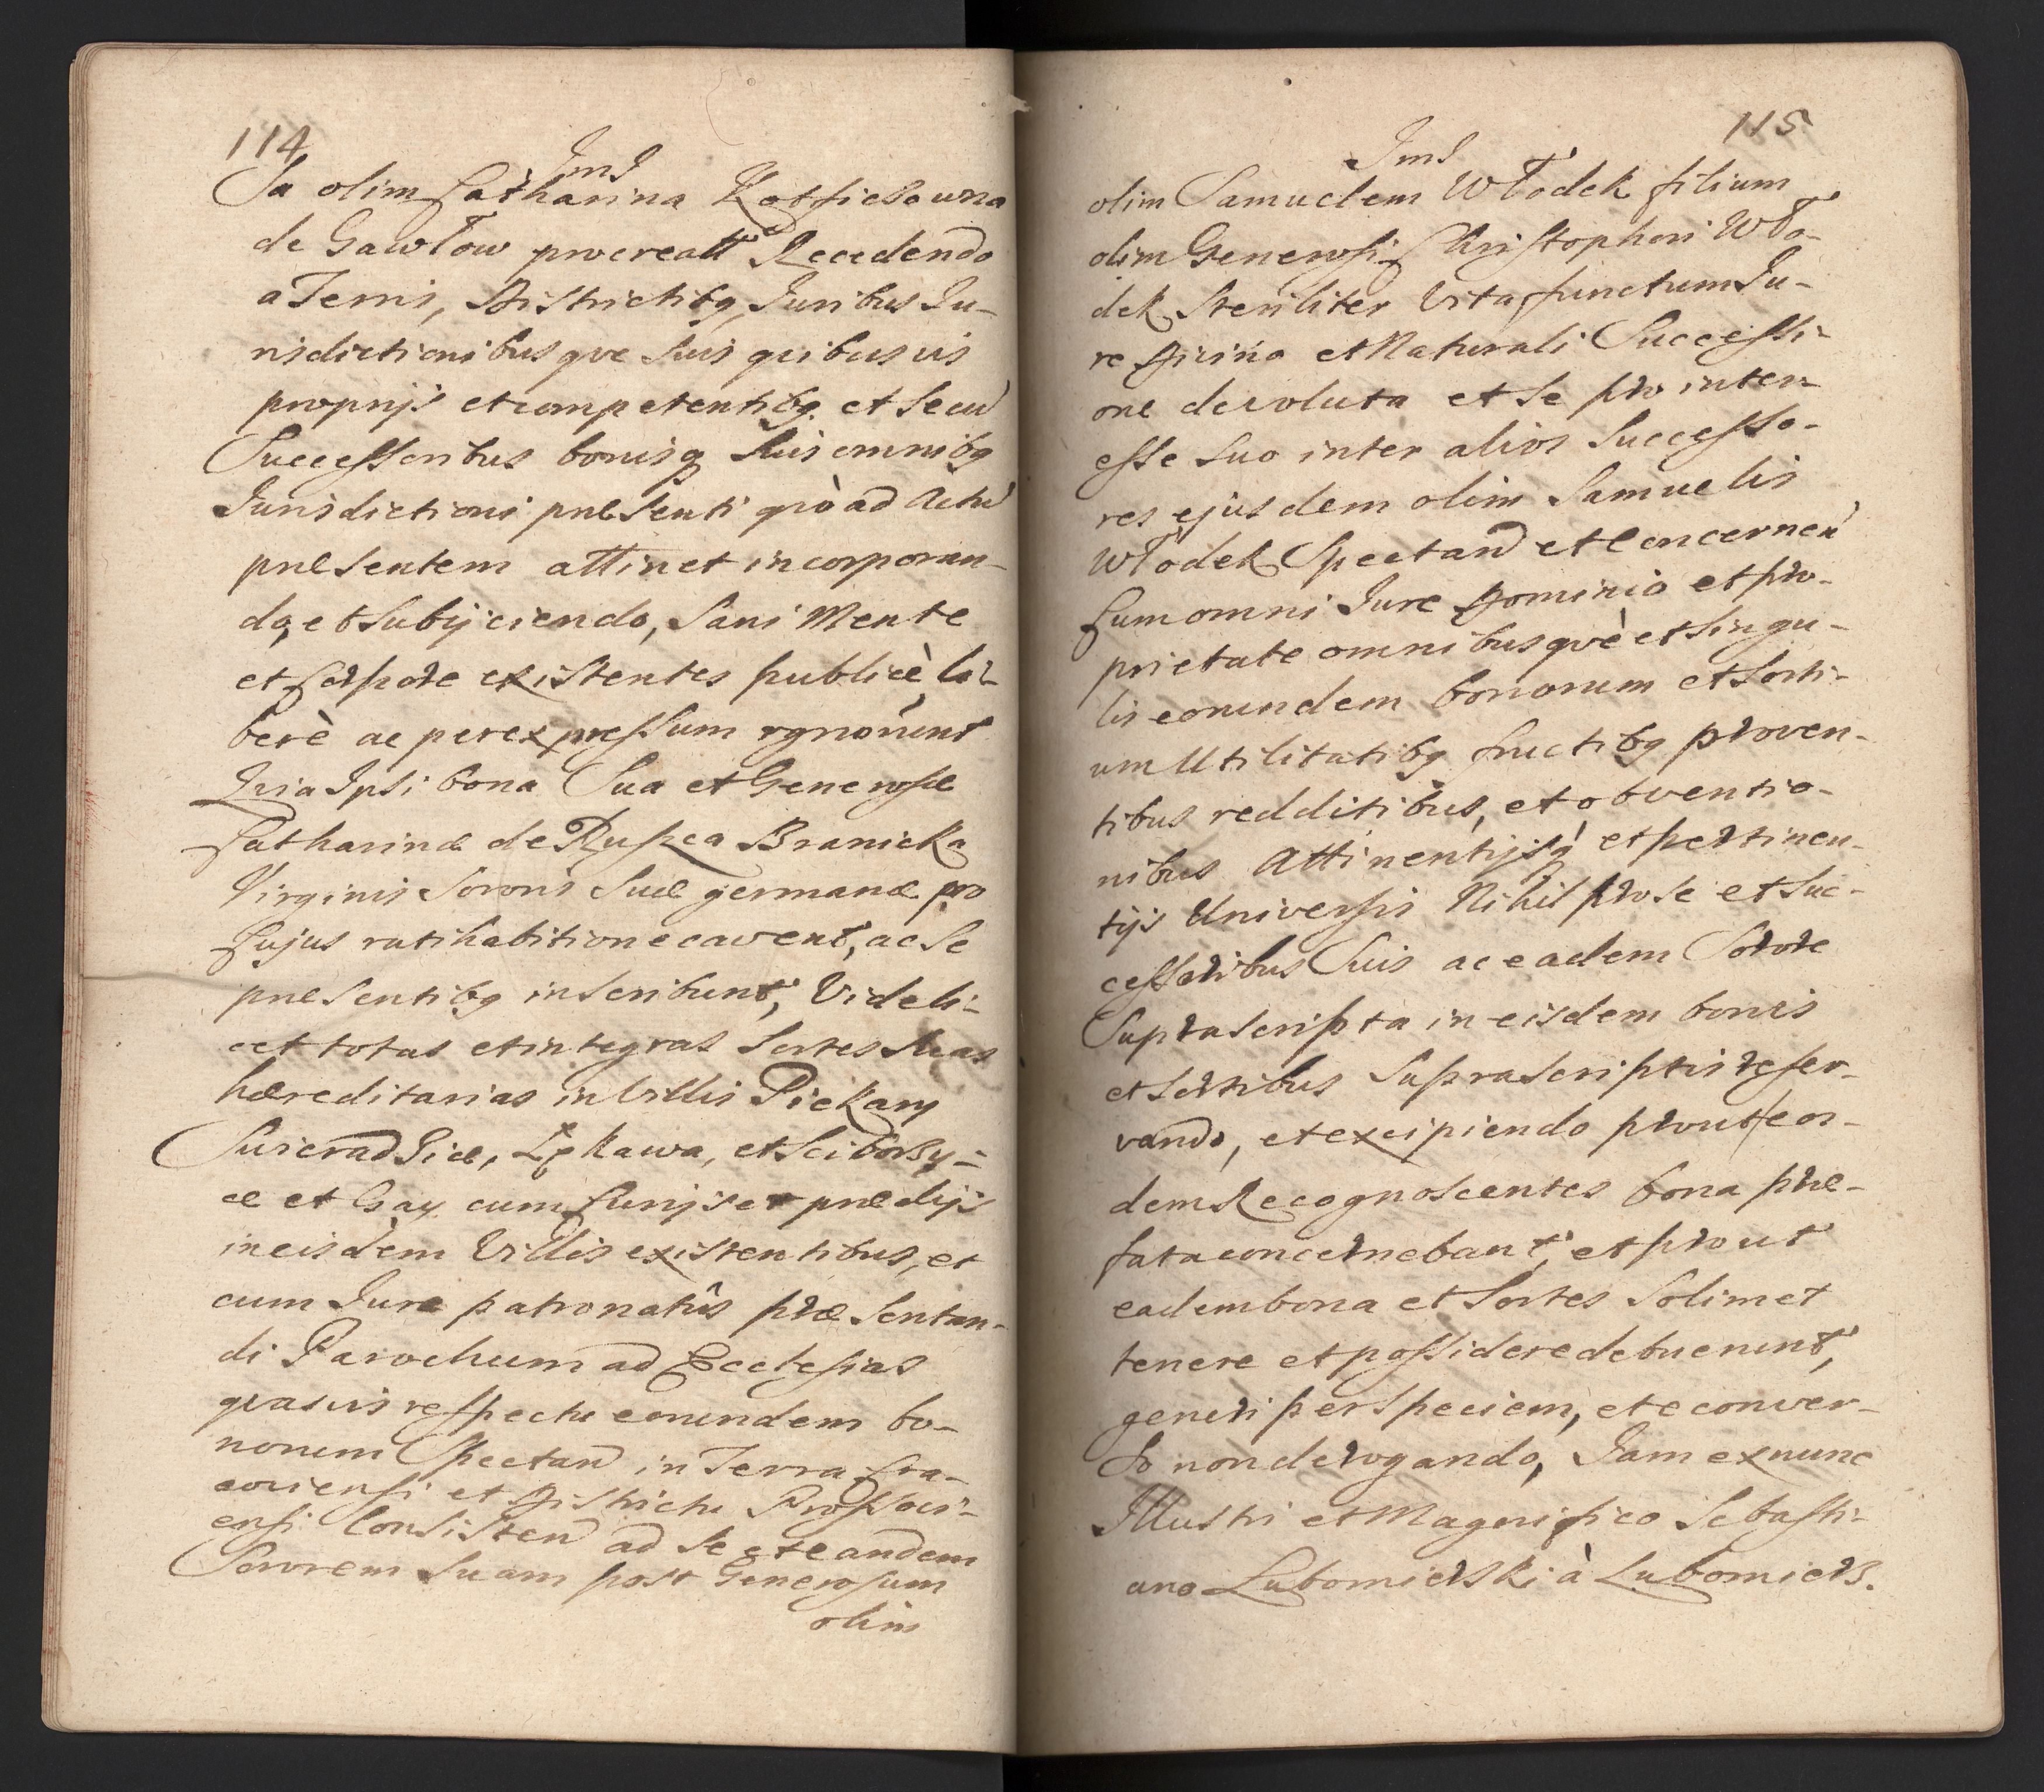 114
Jmſ
Sa olim Catharina Kotficso wna
de Gawłow procreatt Recedendo
a Terris, Districtibq, Juribus Ju-
risdictionibusque suis quibusvis
proprijs et competentibq. et se cu
Successoribus bonisq suis omnibq
Jurisdictioni præsenti qvò ad Actu
præsentem attinet incorporan-
do, et subijciendo, Sani Mente
et Corpore existentes publicè, li-
berè ac per expressum rgnoūerunt
Quia Ipsi bona Sua et Generosæ
Catharinæ de Ruszca Branicka
Virginis Sororis Suæ germanæ pro
Cujus ratihabitione cavent, ac se
præsentibq inscribunt, Videli-
cet totas et integras Sortes Suas
hæreditarias in Villis Piekary
Sciborzy-
æ et Gay cum Curijs et prædijs
in eisdem Villis existentibus, et
cum Jure patronatûs præsentan-
di Parochum ad Ecclesias
qvasvis respectu eorundem bo-
norum Spectand in Terra Cra-
coviensi et Districtu Proszovi-
ensi Consisten ad se et eandem
Sororem Suam post Generosum
olim
115
Jmſ
olim Samuelem Włodek filium
olim Generosi Christophori Wło-
dek Steriliter Vita functum Ju-
re Divino et Naturali Successi-
one devoluta et se pro inter-
esse suo inter alios Successo-
res ejusdem olim Samuelis
Włodek Spectand et Concernen
Cum omni Jure Dominio et pro-
prietate omnibusqvè et singu-
lis eorundem bonorum et Sorti-
um Utilitatibq fructibq proven-
tibus redditibus, et obventio-
nibus Attinentijsq et pertinen-
tijs Universis Nihil pro se et Suc-
cessoribus Suis ac eadem Sorore
Suprascripta in eisdem bonis
et Sortibus Suprascriptis reser-
vando, et excipiendo prout eos-
dem Recognoscentes bona præ-
fata concernebant, et prout
eadem bona et Sortes Solimet
tenere et possidere debuerunt,
generi per Speciem, et e conver-
so non derogando, Jam ex nunc
Illustri et Magnifico Sebasti-
ano Lubomierski à Lubomierz.